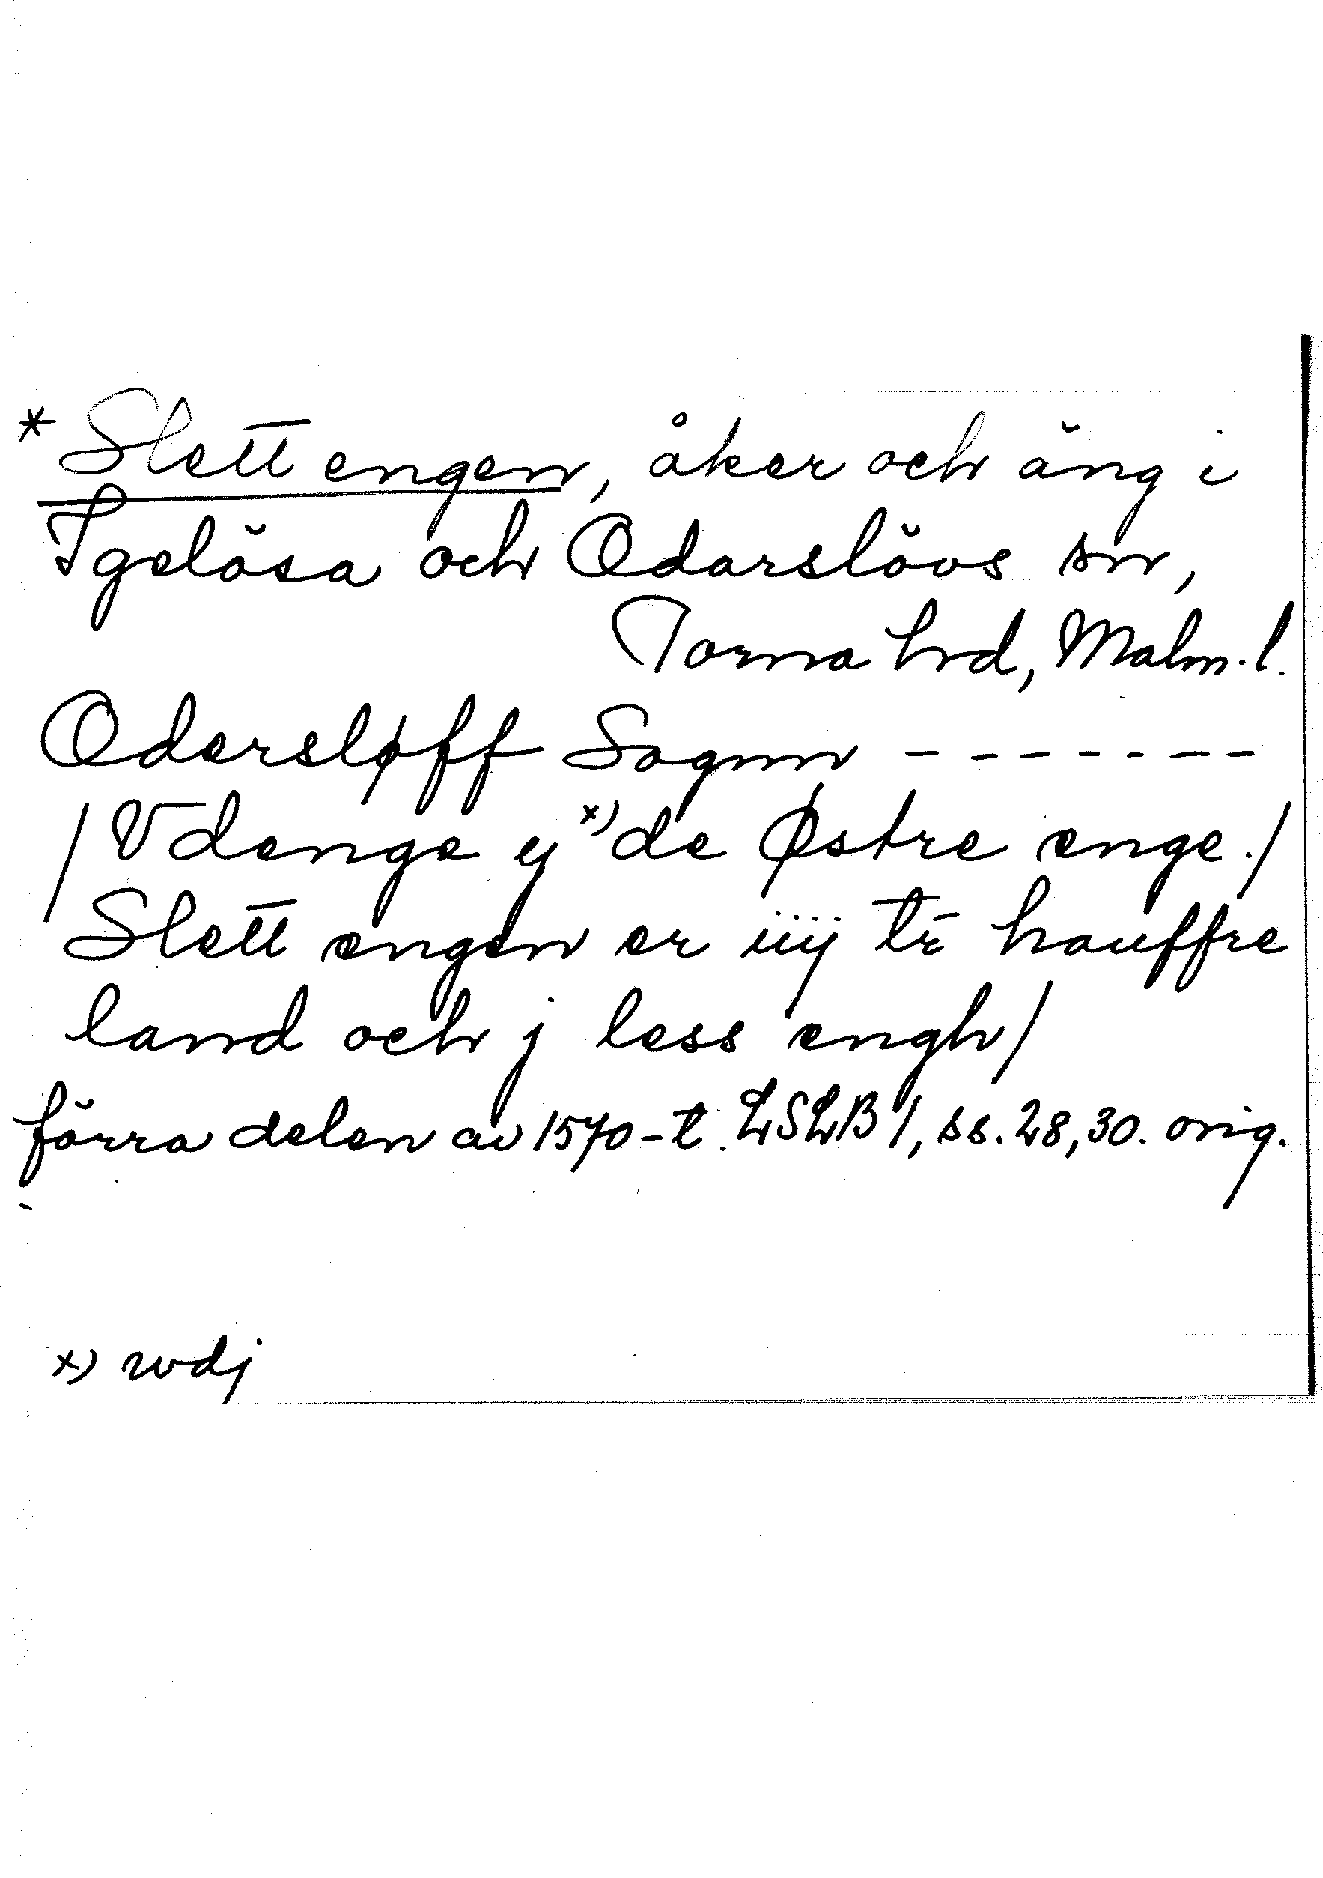 * Slett engen, åker och äng i
Igelösa och Odarslövs snr,
Torna hrd, Malm. l.
Odersløff Sognn - - - - - - -
/ Vdenge y x) de Østre enge. /
Slett engen er iiij tr hauffre
land och j less engh /
förra delen av 1570-t. LSLB 1, ss. 28, 30. orig.
x) wdj